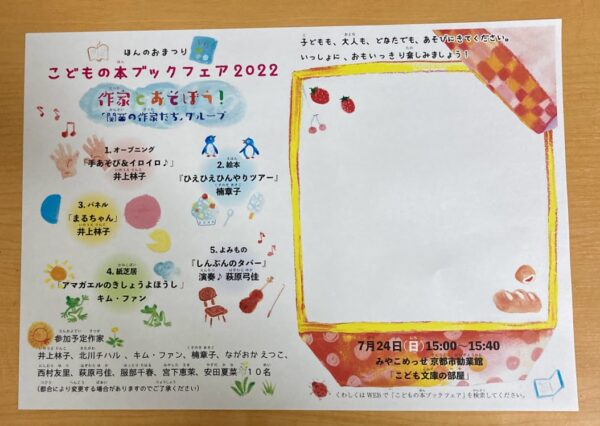 ほんのおまつり
こどもの本ブックフェア2022
作家とあそぼう!
「関西の作家たち」グループ
1. オープニング
『手あそび&イロイロ♪』
井上林子
2. 絵本
『ひえひえひんやりツアー』
楠章子
3. パネル
「まるちゃん」
井上林子
4. 紙芝居
「アマガエルのきしょうよほうし」
キム・ファン
5. よみもの
『しんぶんのタバー』
演奏♪ 萩原弓佳
参加予定作家
井上林子、北川チハル、キム・ファン、楠章子、ながおかえつこ、
西村友里、萩原弓佳、服部千春、宮下恵茉、安田夏菜 10名
(都合により変更する場合がありますのでご了承ください)
子どもも、大人も、どなたでも、あそびにきてください。
いっしょに、おもいっきり楽しみましょう!
7月24日(日)15:00~15:40
みやこめっせ 京都市勧業館
「こども文庫の部屋」
くわしくはWEBで「こどもの本ブックフェア」を検索してください。